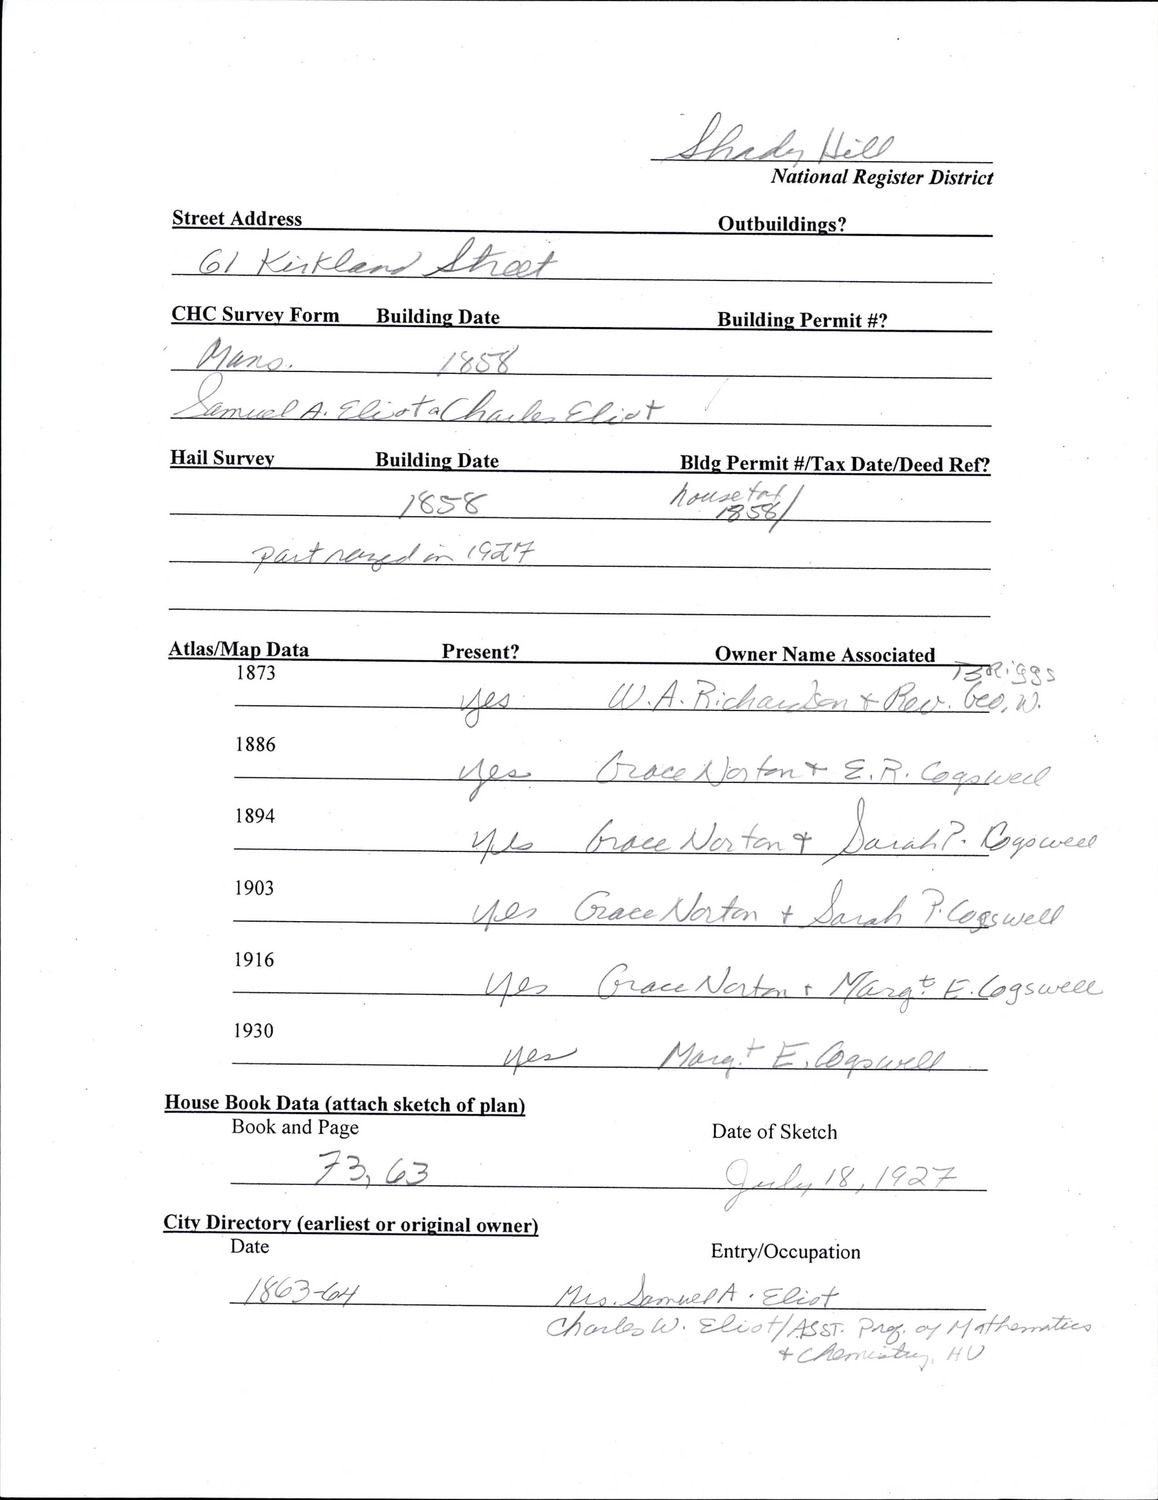 Shady Hill
National Register District
Street Address Outbuildings?
61 Kirkland Street
CHC Survey Form Building Date Building Permit #?
Mans. 1858
Samuel A. Eliot & Charles Eliot
Hail Survey Building Date Bldg Permit #/Tax Date/Deed Ref?
house tax
1858 1858/
part razed in 1927
Atlas/Map Data Present? Owner Name Associated
1873 Briggs
yes W. A. Richardson + Rev. Geo. W.
1886
yes Grace Norton + E. R. Cogswell
1894
yes Grace Norton + Sarah P. Cogswell
1903
yes Grace Norton + Sarah P. Cogswell
1916
yes Grace Norton + Margt E. Cogswell
1930
yes Margt E. Cogswell
House Book Data (attach sketch of plan)
Book and Page Date of Sketch
73, 63 July 18, 1927
City Directory (earliest or original owner)
Date Entry/Occupation
1863-64 Mrs. Samuel A. Eliot
Charles W. Eliot/ASST. Prof. of Mathematics
+ Chemistry, HU